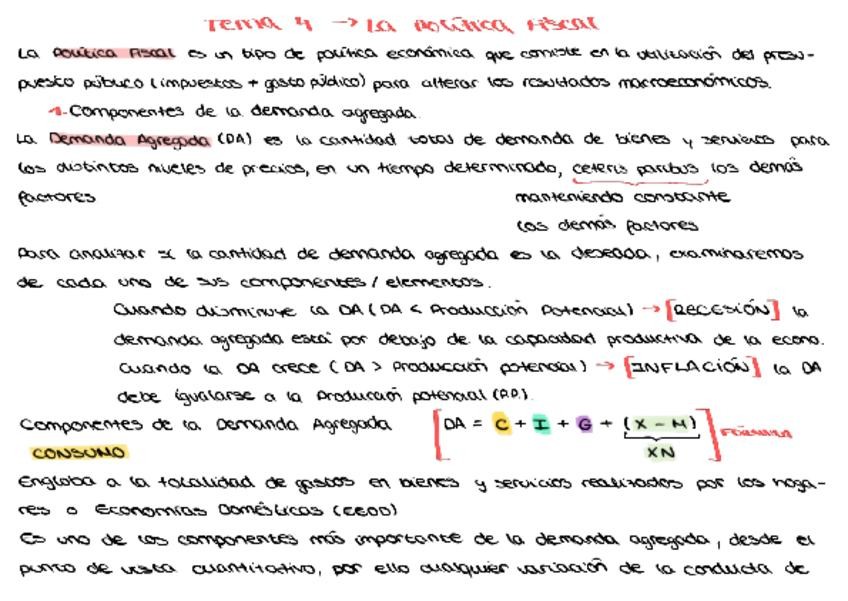 Tema 4 → La Política Fiscal
La Política Fiscal es un tipo de política económica que consiste en la utilización del presu-
puesto público (impuestos + gasto público) para alterar los resultados macroeconómicos.
1. Componentes de la demanda agregada.
La Demanda Agregada (DA) es la cantidad total de demanda de bienes y servicios para
los distintos niveles de precios, en un tiempo determinado, ceteris paribus los demás
factores
manteniendo constante
los demás factores
Para analizar si la cantidad de demanda agregada es la deseada, examinaremos
de cada uno de sus componentes / elementos.
Cuando disminuye la DA (DA < Producción Potencial) → [RECESIÓN] la
demanda agregada está por debajo de la capacidad productiva de la econo.
Cuando la DA crece (DA > Producción potencial) → [INFLACIÓN] la DA
debe igualarse a la Producción potencial (P.P.).
Componentes de la Demanda Agregada [DA = C + I + G + (X - M)] FÓRMULA
XN
CONSUMO
Engloba a la totalidad de gastos en bienes y servicios realizados por los hoga-
res o Economías Domésticas (EEDD)
Es uno de los componentes más importante de la demanda agregada, desde el
punto de vista cuantitativo, por ello cualquier variación de la conducta de